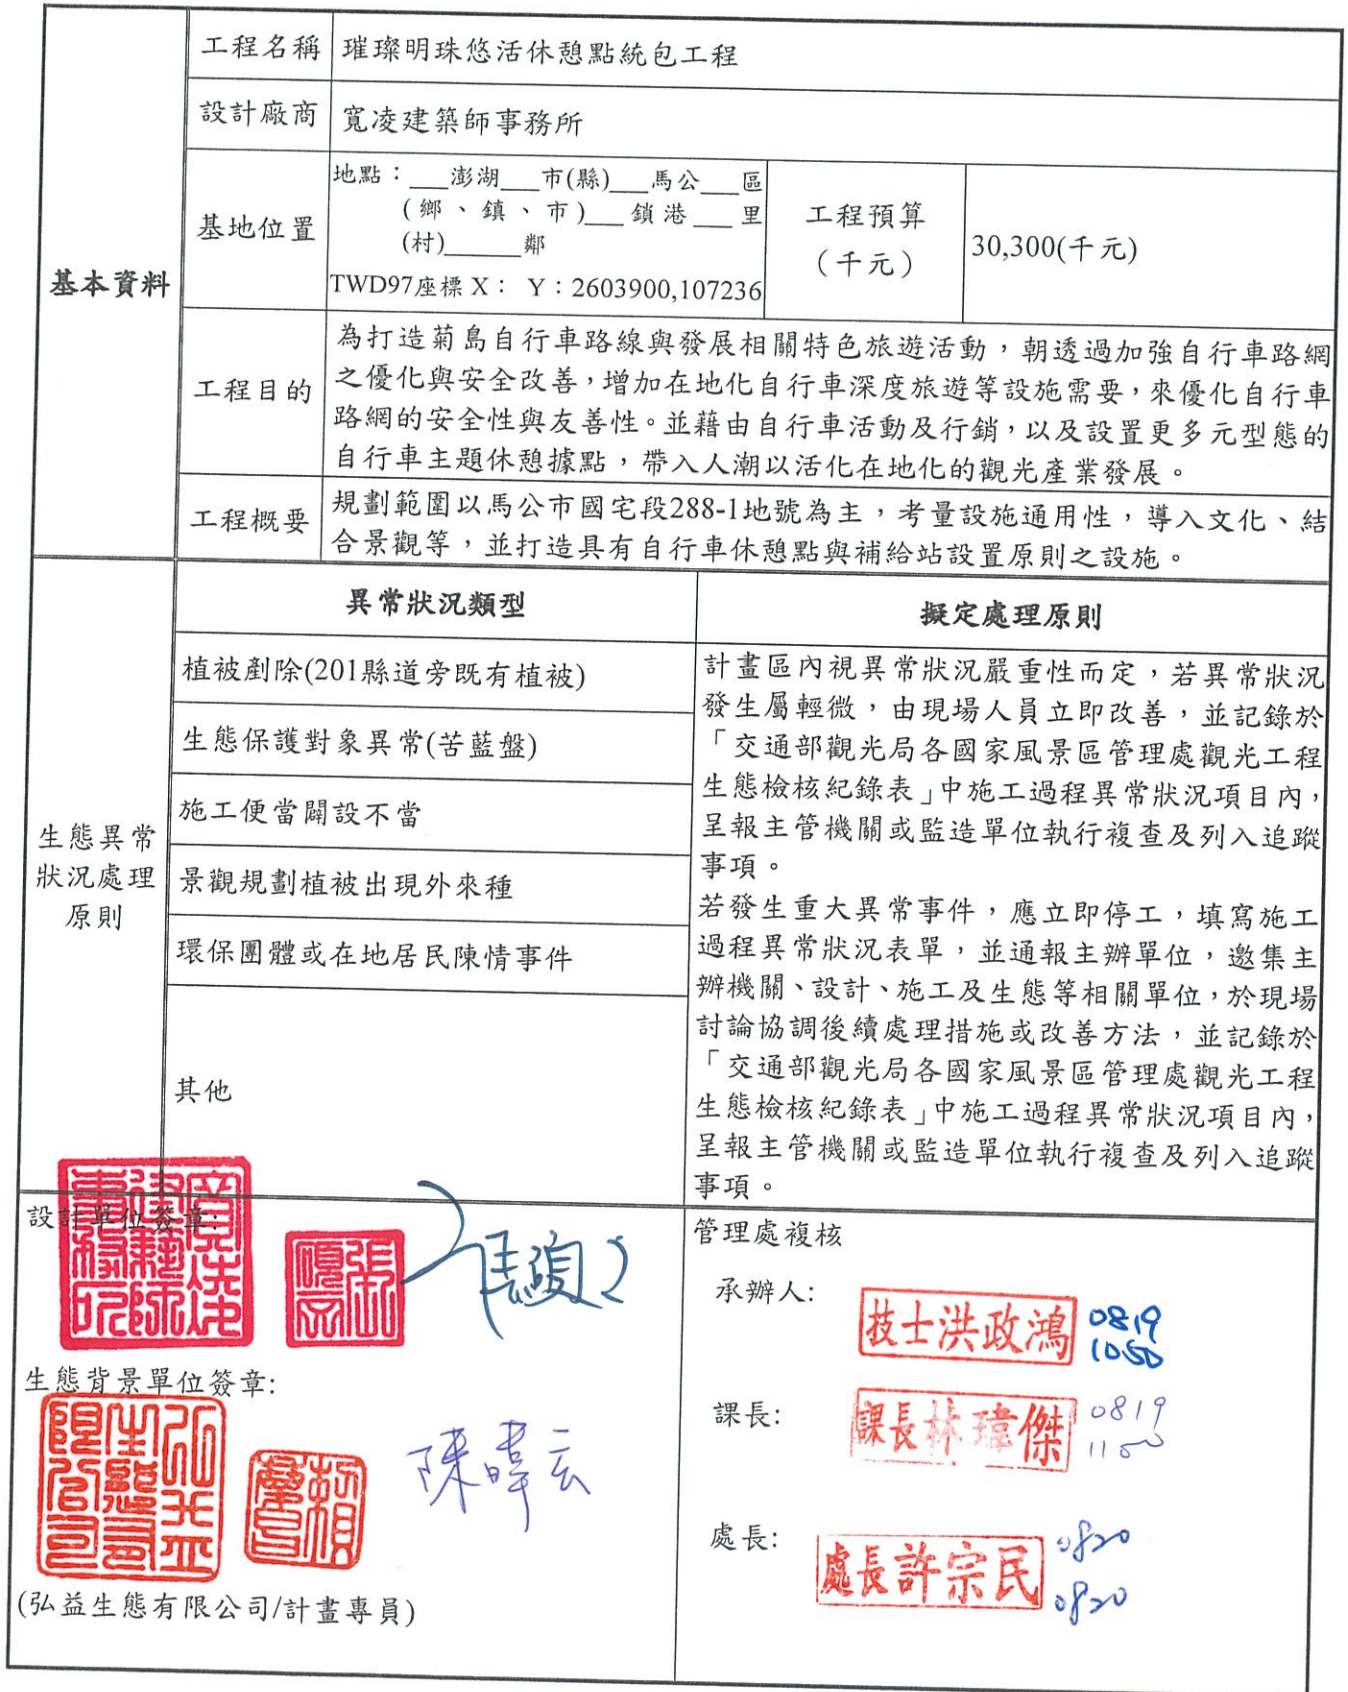 工程名稱 璀璨明珠悠活休憩點統包工程
設計廠商 寬凌建築師事務所
基本資料
基地位置
地點：___澎湖___市(縣)___馬公___區
(鄉、鎮、市)___鎖港___里
(村)______鄰
TWD97座標 X： Y：2603900,107236
工程預算
（千元）
30,300(千元)
工程目的
為打造菊島自行車路線與發展相關特色旅遊活動，朝透過加強自行車路網
之優化與安全改善，增加在地化自行車深度旅遊等設施需要，來優化自行車
路網的安全性與友善性。並藉由自行車活動及行銷，以及設置更多元型態的
自行車主題休憩據點，帶入人潮以活化在地化的觀光產業發展。
工程概要
規劃範圍以馬公市國宅段288-1地號為主，考量設施通用性，導入文化、結
合景觀等，並打造具有自行車休憩點與補給站設置原則之設施。
生態異常
狀況處理
原則
異常狀況類型
植被剷除(201縣道旁既有植被)
生態保護對象異常(苦藍盤)
施工便當闢設不當
景觀規劃植被出現外來種
環保團體或在地居民陳情事件
其他
擬定處理原則
計畫區內視異常狀況嚴重性而定，若異常狀況
發生屬輕微，由現場人員立即改善，並記錄於
「交通部觀光局各國家風景區管理處觀光工程
生態檢核紀錄表」中施工過程異常狀況項目內，
呈報主管機關或監造單位執行複查及列入追蹤
事項。
若發生重大異常事件，應立即停工，填寫施工
過程異常狀況表單，並通報主辦單位，邀集主
辦機關、設計、施工及生態等相關單位，於現場
討論協調後續處理措施或改善方法，並記錄於
「交通部觀光局各國家風景區管理處觀光工程
生態檢核紀錄表」中施工過程異常狀況項目內，
呈報主管機關或監造單位執行複查及列入追蹤
事項。
設計單位簽章:
寬凌
建築師
事務所
生態背景單位簽章:
弘益
生態有
限公司
陳暐云
(弘益生態有限公司/計畫專員)
管理處複核
承辦人:
技士洪政鴻 0819
1050
課長:
課長林瑋傑 0819
1100
處長:
處長許宗民 0820
0820